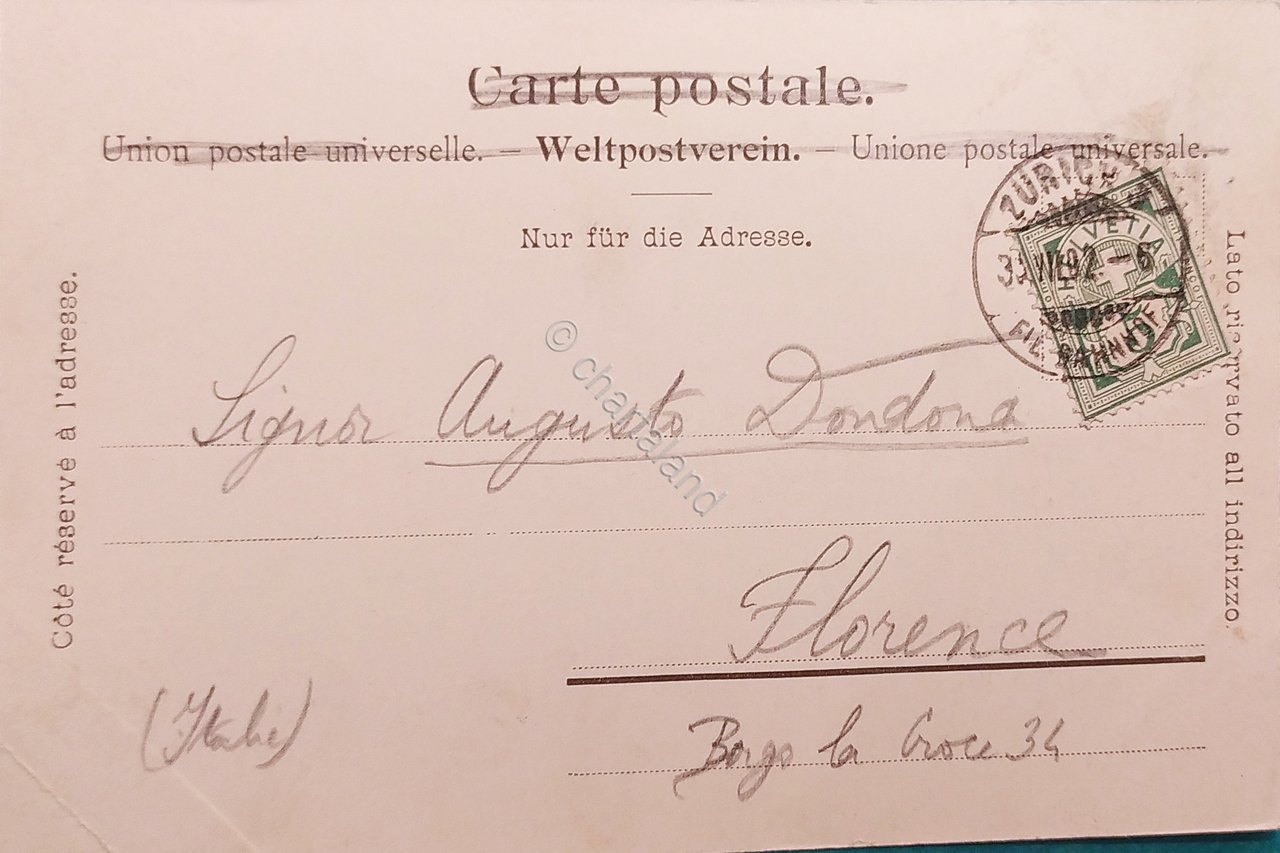 Carte postale.
Union postale universelle. – Weltpostverein. – Unione postale universale.
Nur für die Adresse.
Côté réservé à l'adresse.
Lato riservato all indirizzo.
ZÜRICH
HELVETIA
FIL. BAHNHOF
© chartaland
Signor Augusto Dondona
Florence
(Italie)
Borgo la Croce 34